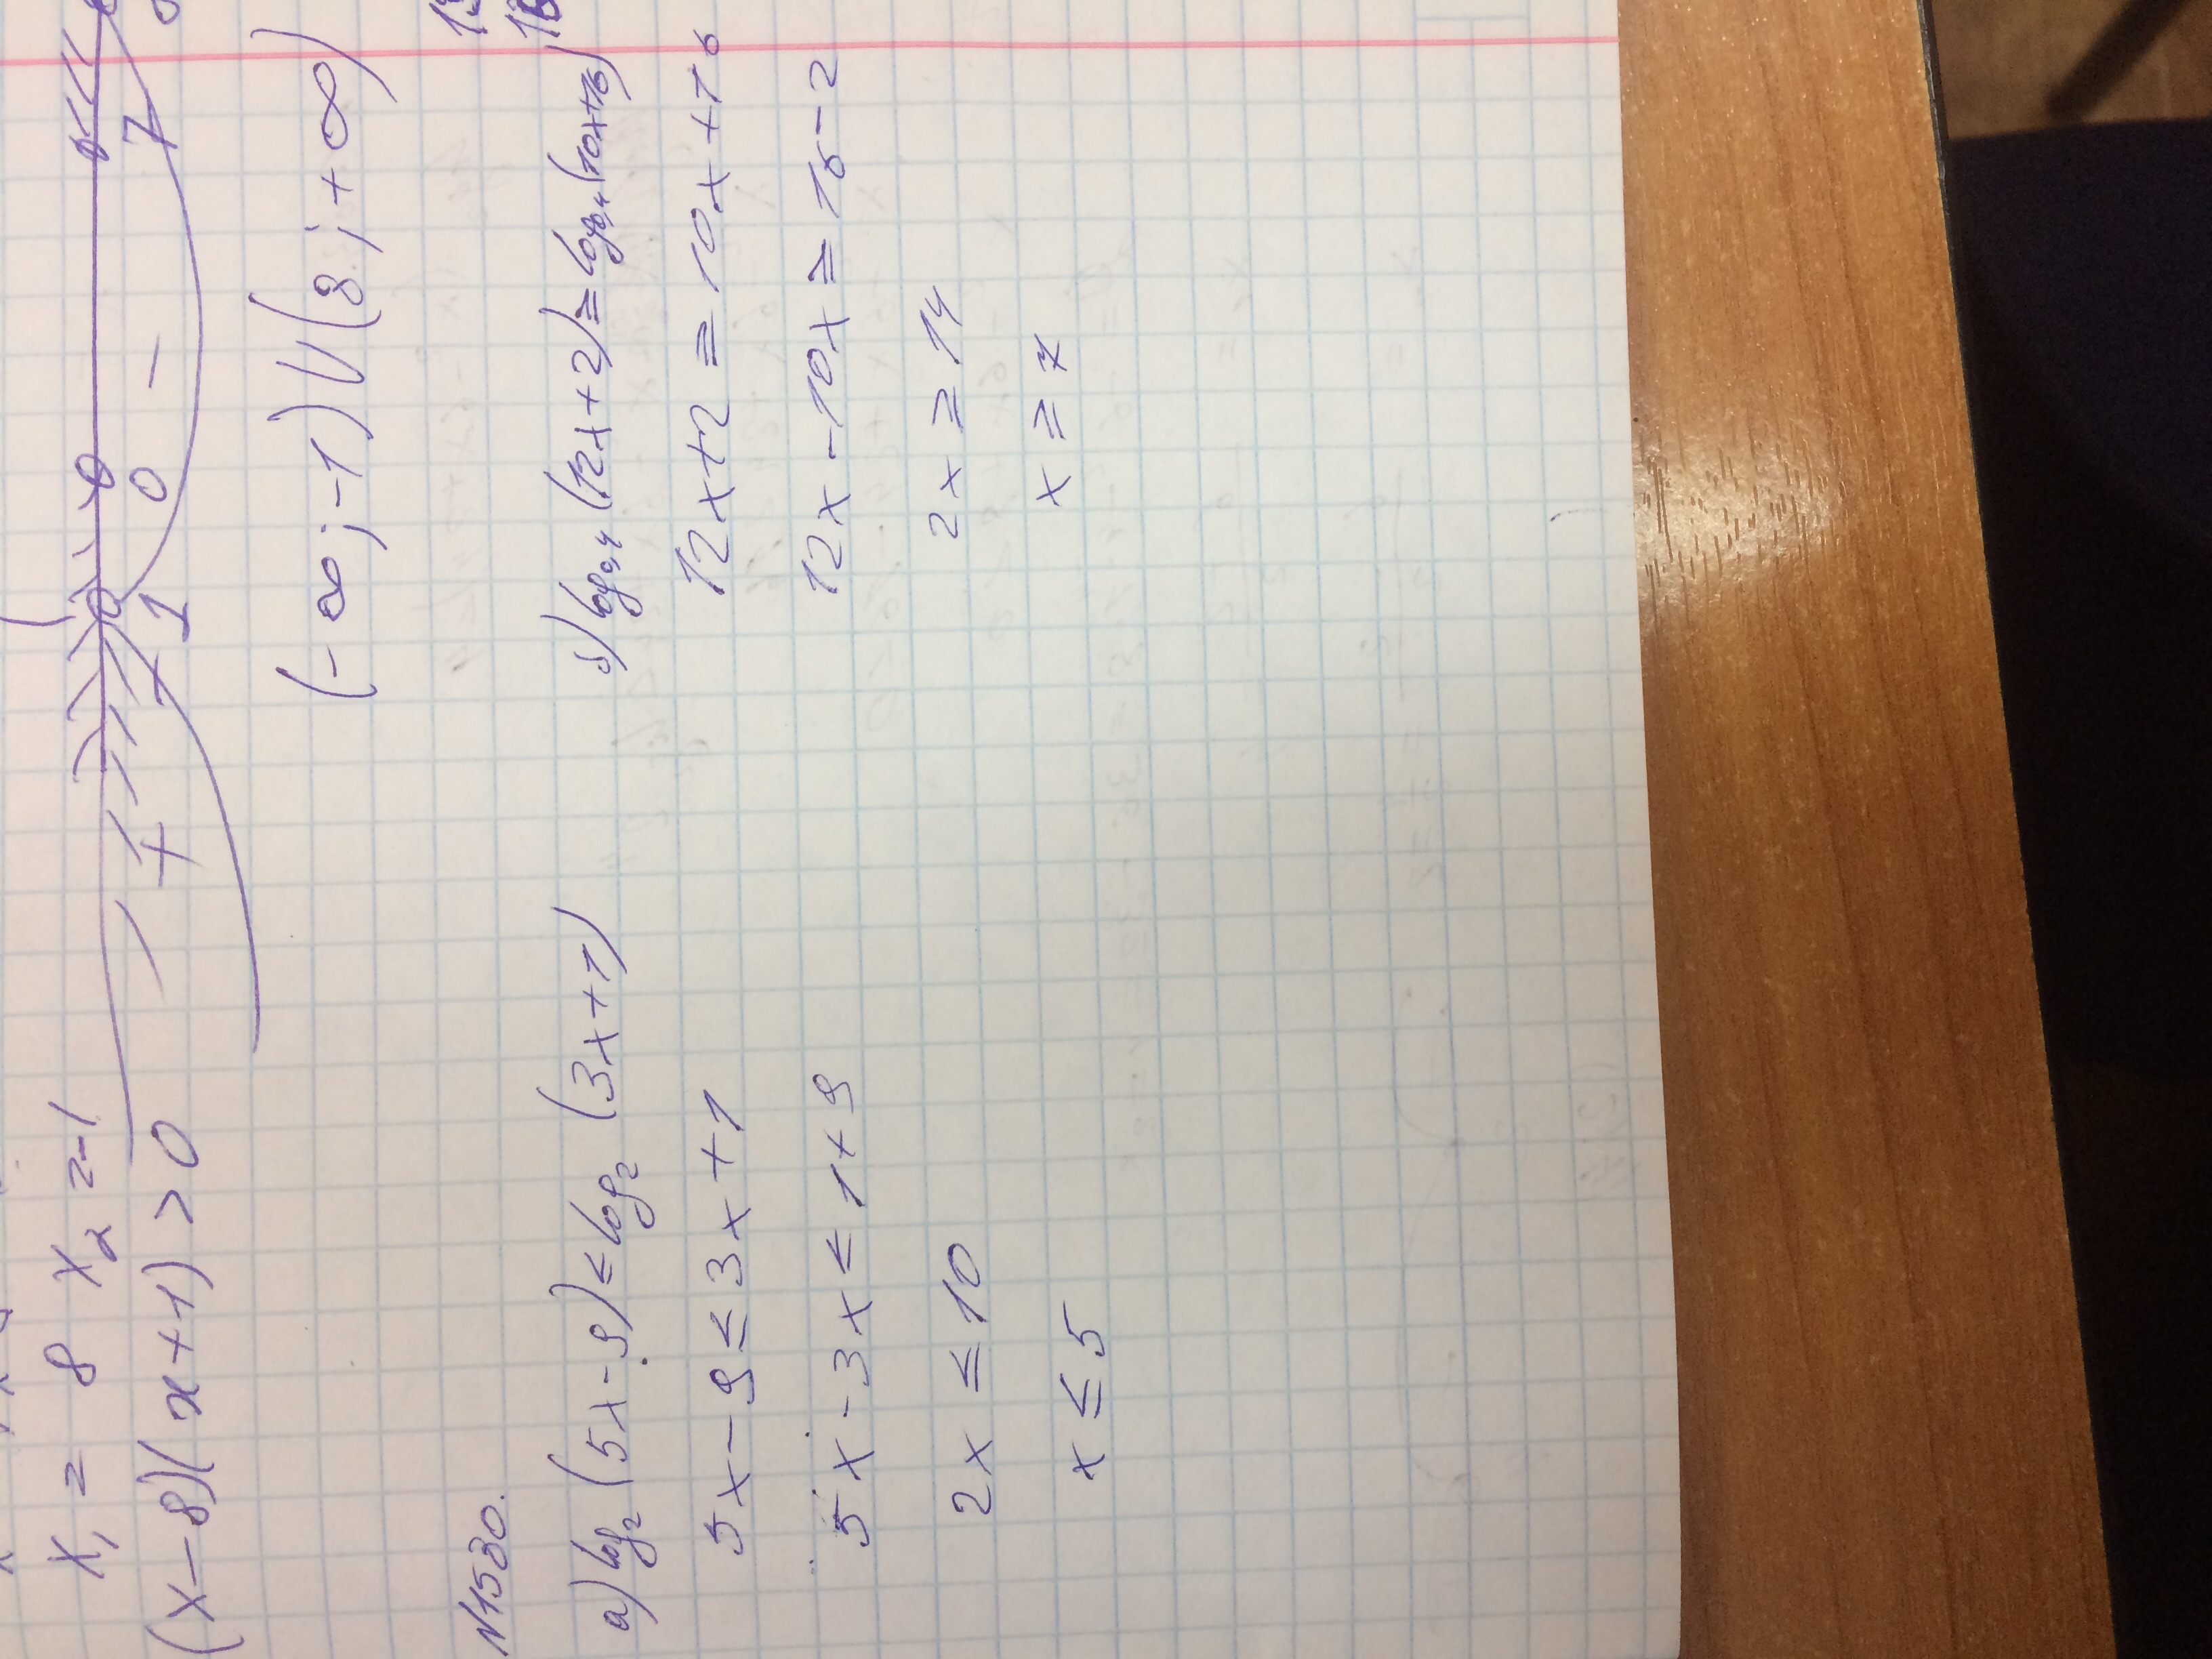 x₁ = 8 x₂ = -1
(x-8)(x+1)>0
+ 1 0 - 7
(-∞; -1) ∪ (8; +∞)
N1530.
а) log₂ (5x-9) ≤ log₂ (3x+1)
5x-9 ≤ 3x+1
5x-3x ≤ 1+9
2x ≤ 10
x ≤ 5
б) log₀,₄ (12x+2) ≥ log₀,₄ (10x+16)
12x+2 = 10x+16
12x-10x ≥ 16-2
2x ≥ 14
x ≥ 7